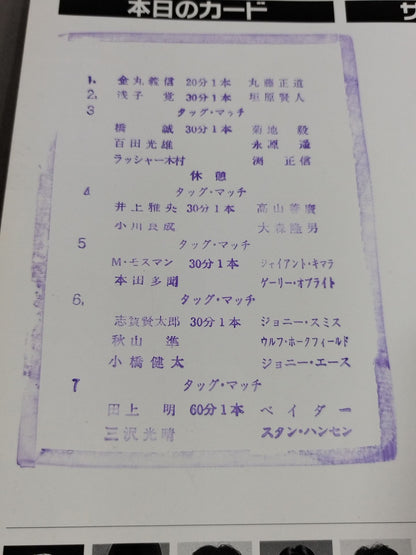 本日のカード
1. 金丸義信 20分1本 丸藤正道
2. 浅子 覚 30分1本 垣原賢人
3 タッグ・マッチ
橋 誠 30分1本 菊地 毅
百田光雄 永源 遙
ラッシャー木村 渕 正信
休憩
4 タッグ・マッチ
井上雅央 30分1本 高山善廣
小川良成 大森隆男
5 タッグ・マッチ
M・モスマン 30分1本 ジャイアント・キマラ
本田多聞 ゲーリー・オブライト
6. タッグ・マッチ
志賀賢太郎 30分1本 ジョニー・スミス
秋山 準 ウルフ・ホークフィールド
小橋健太 ジョニー・エース
7 タッグ・マッチ
田上 明 60分1本 ベイダー
三沢光晴 スタン・ハンセン